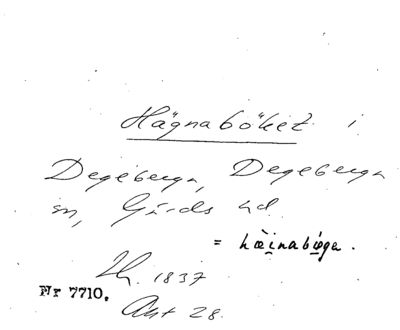 Hägnaböket i
Degeberga, Degeberga
sn, Gärds hd.
= hæ̀inabø̨ga.
Lh. 1837
Nr 7710.
Akt 28.